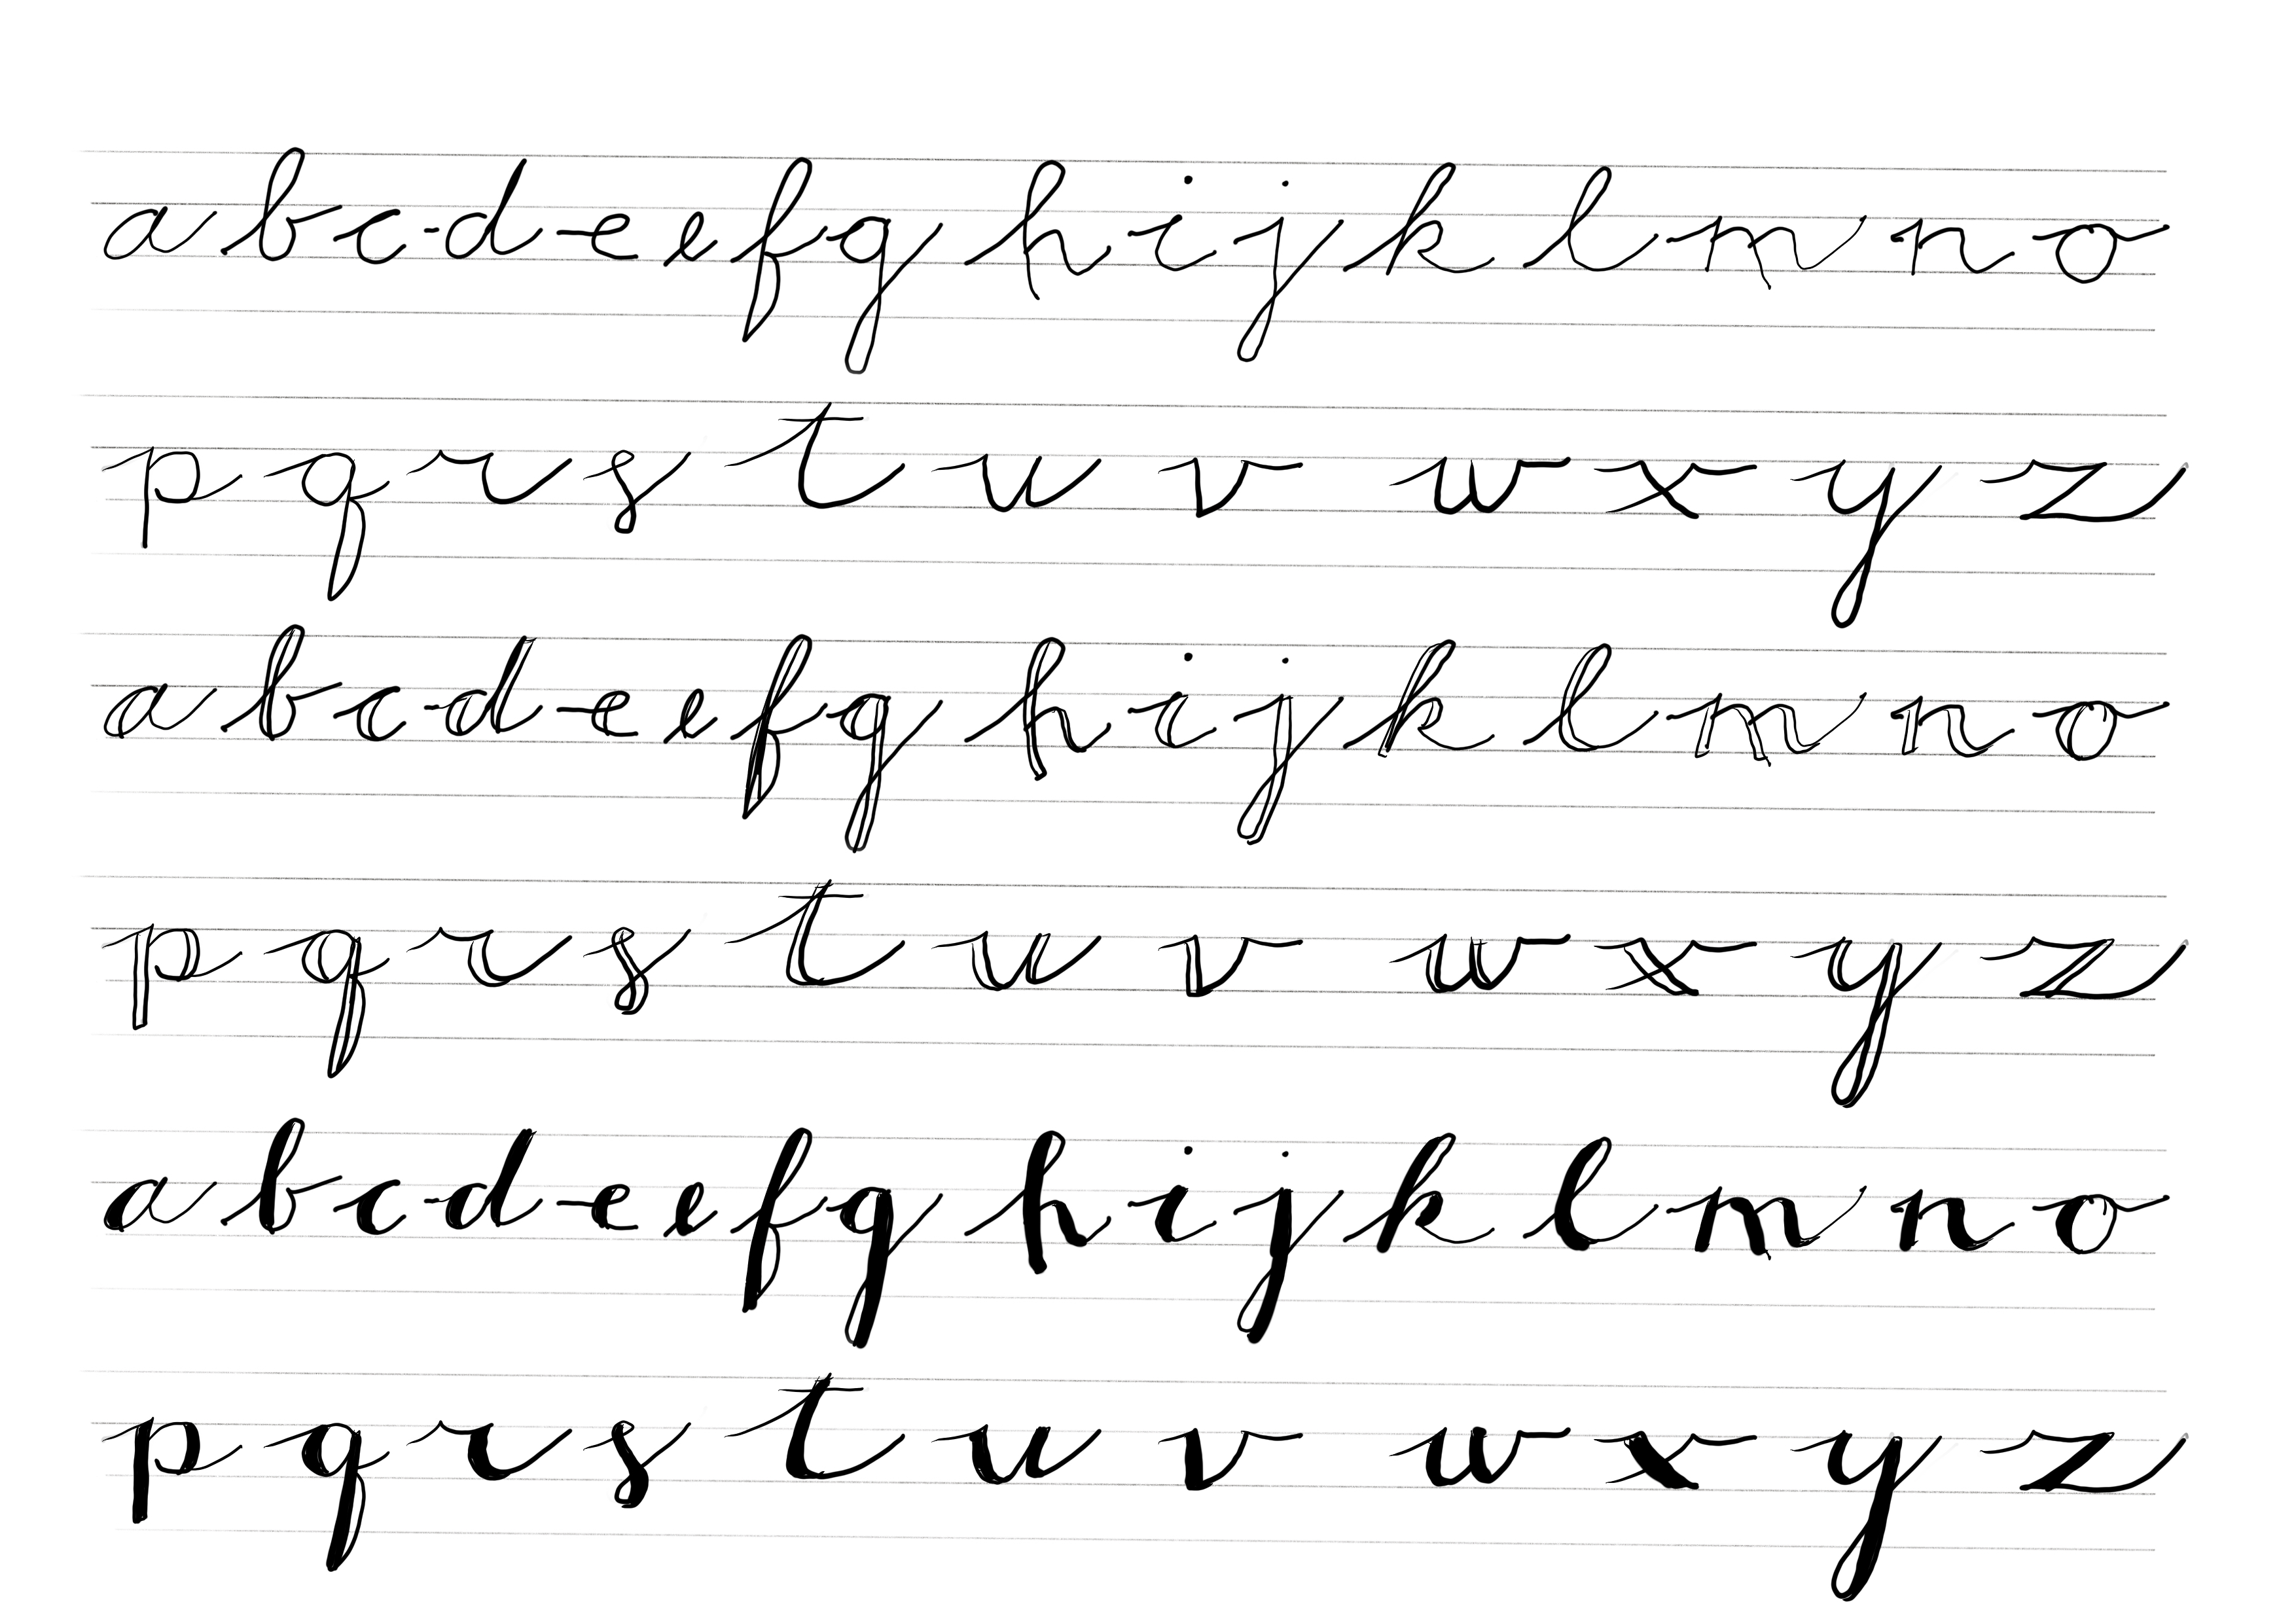 a b c d e e f g h i j k l m n o
p q r s t u v w x y z
a b c d e e f g h i j k l m n o
p q r s t u v w x y z
a b c d e e f g h i j k l m n o
p q r s t u v w x y z